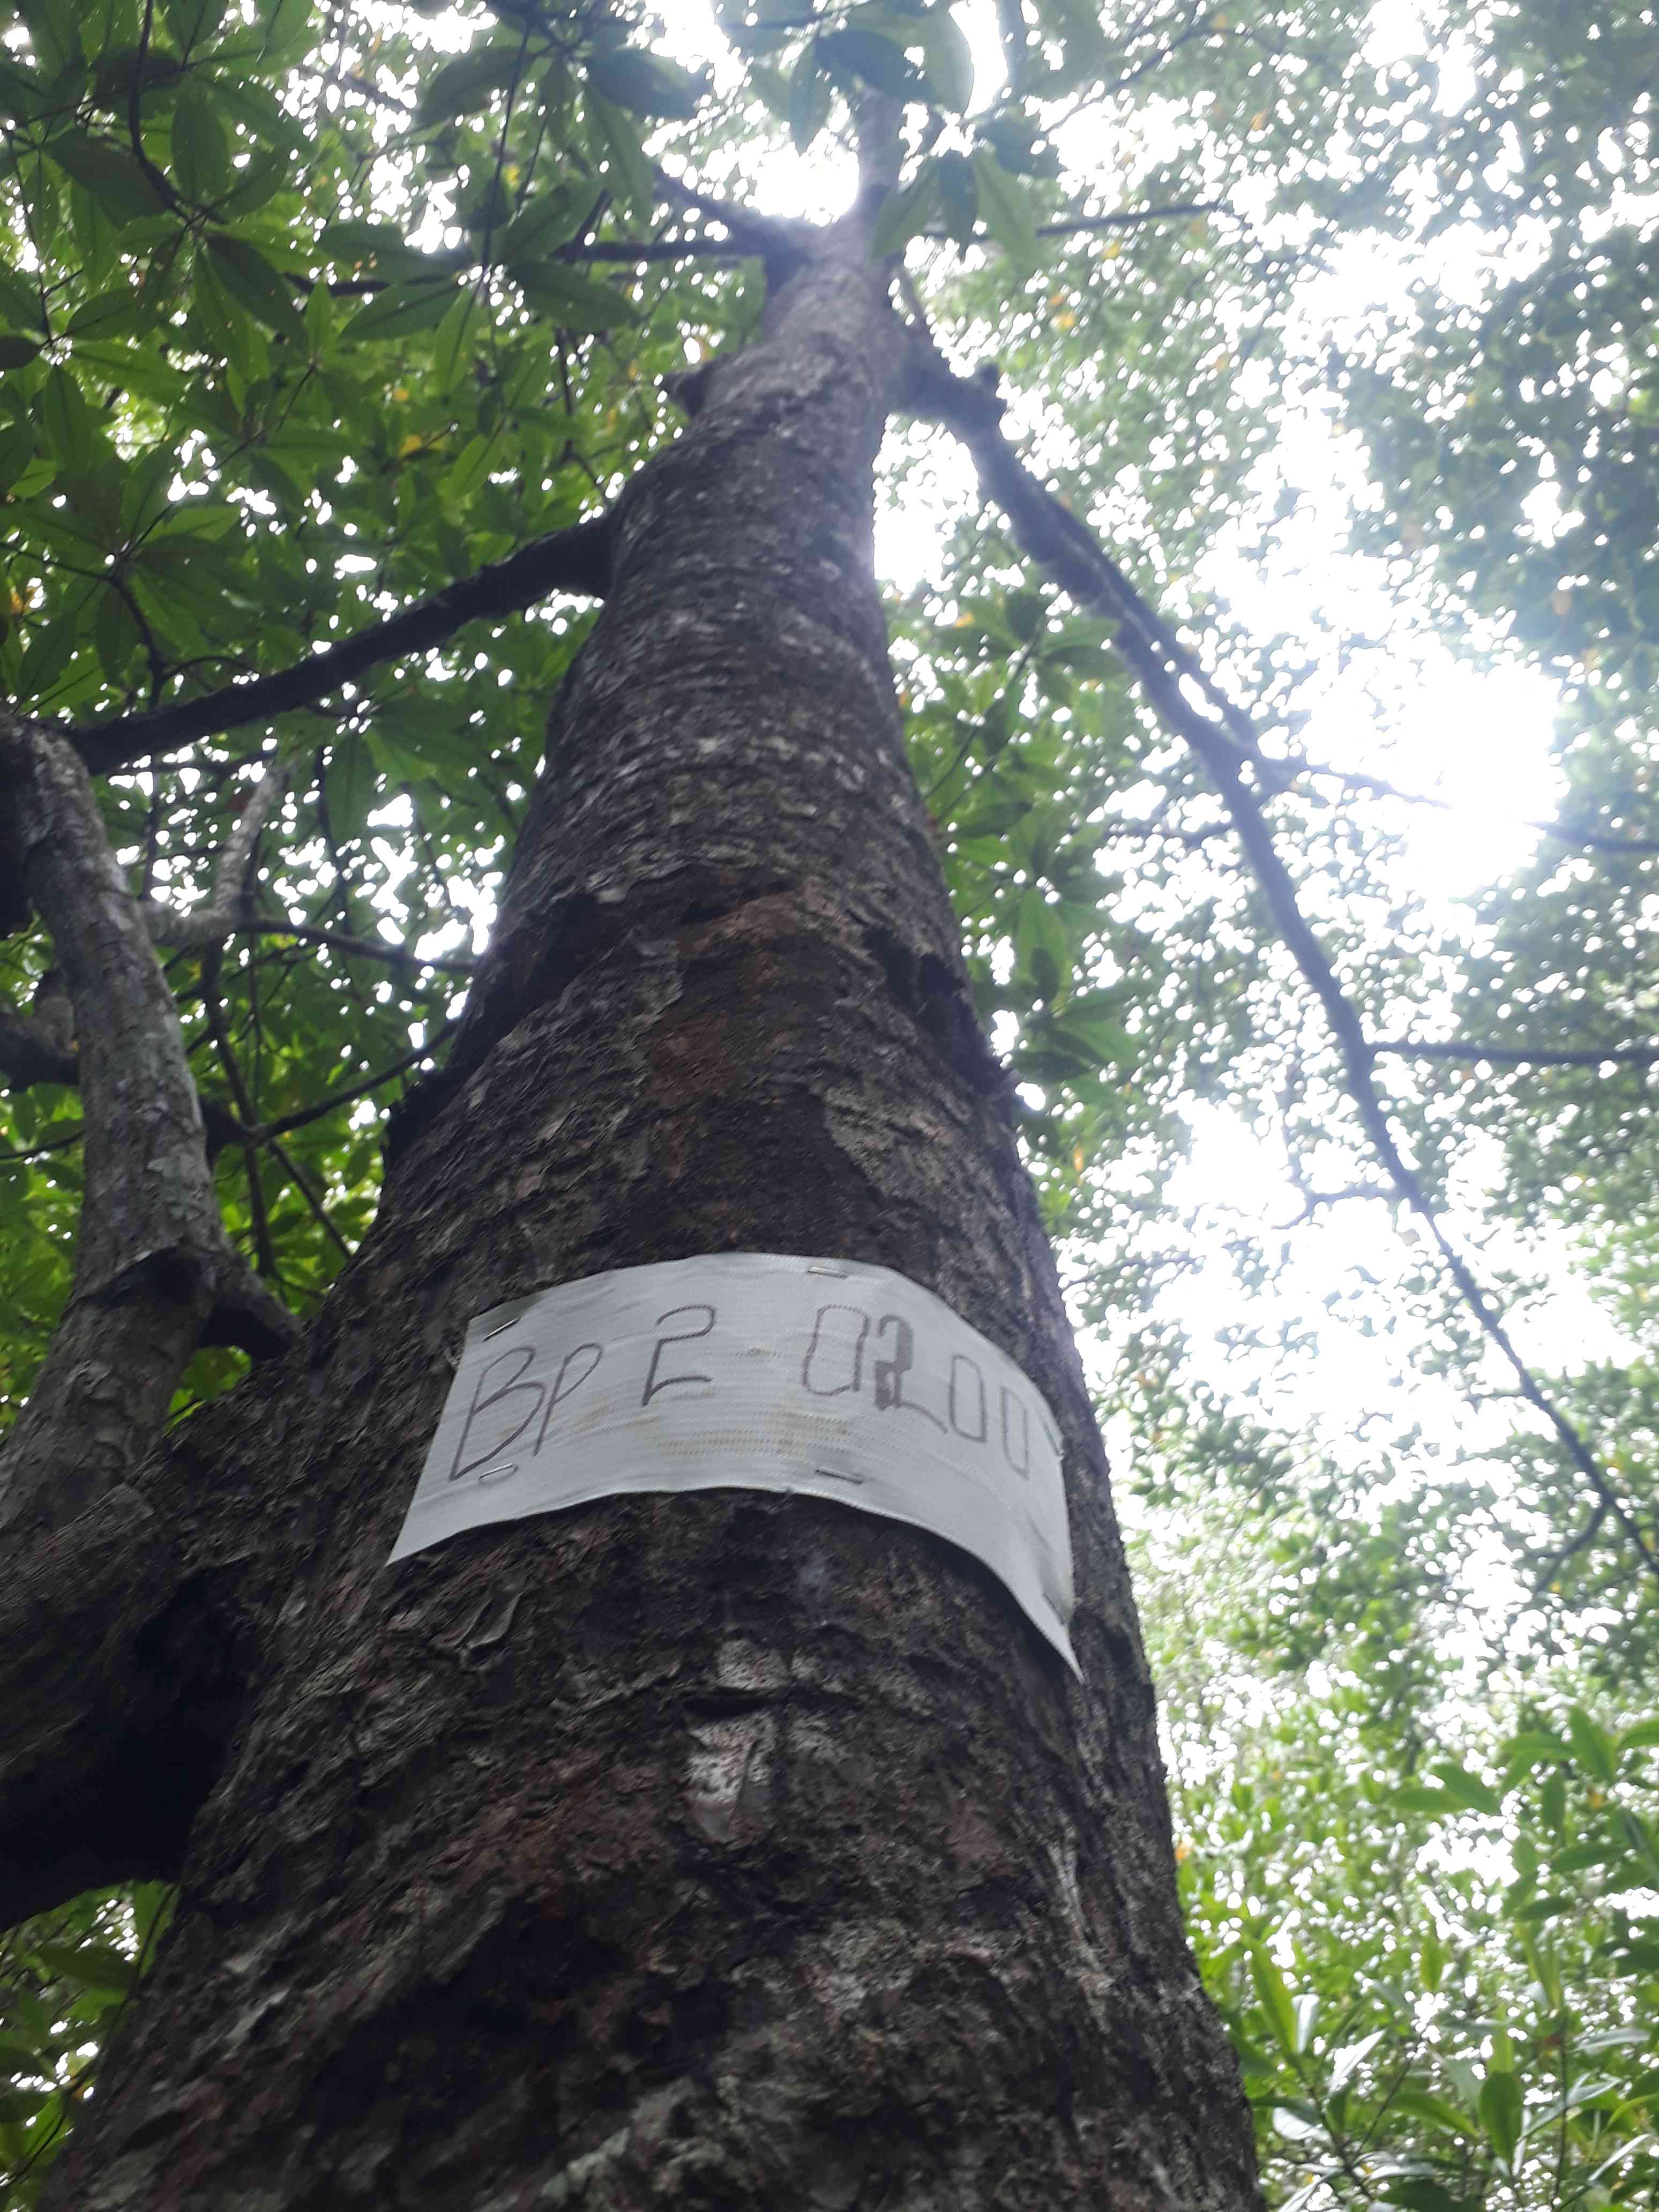 BP 2 0200